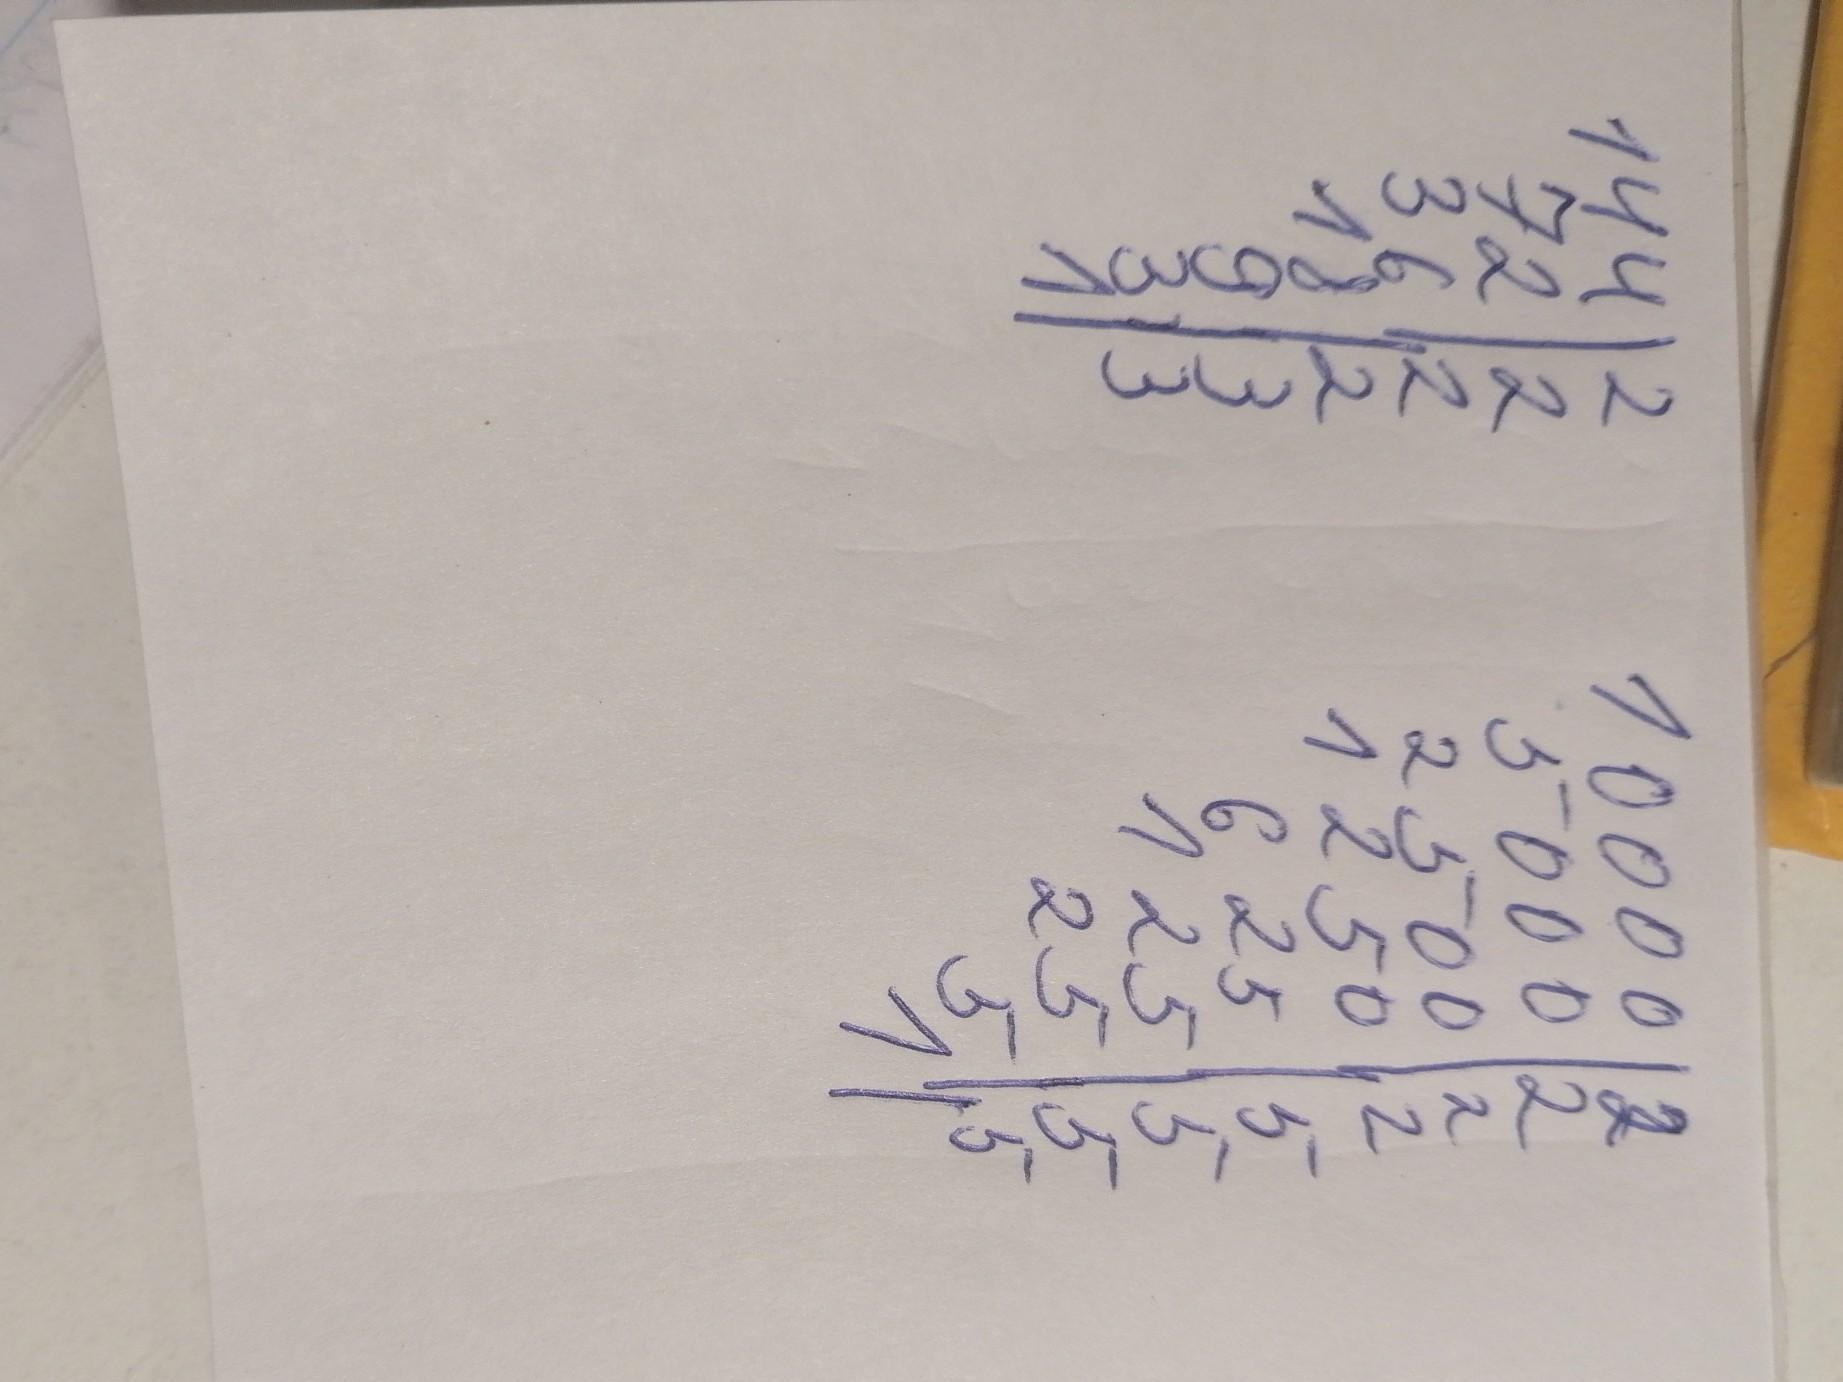 144|2 10000|2
72|2 5000|2
36|2 2500|2
18|2 1250|2
9|3 625|5
3|3 125|5
1| 25|5
5|5
1|